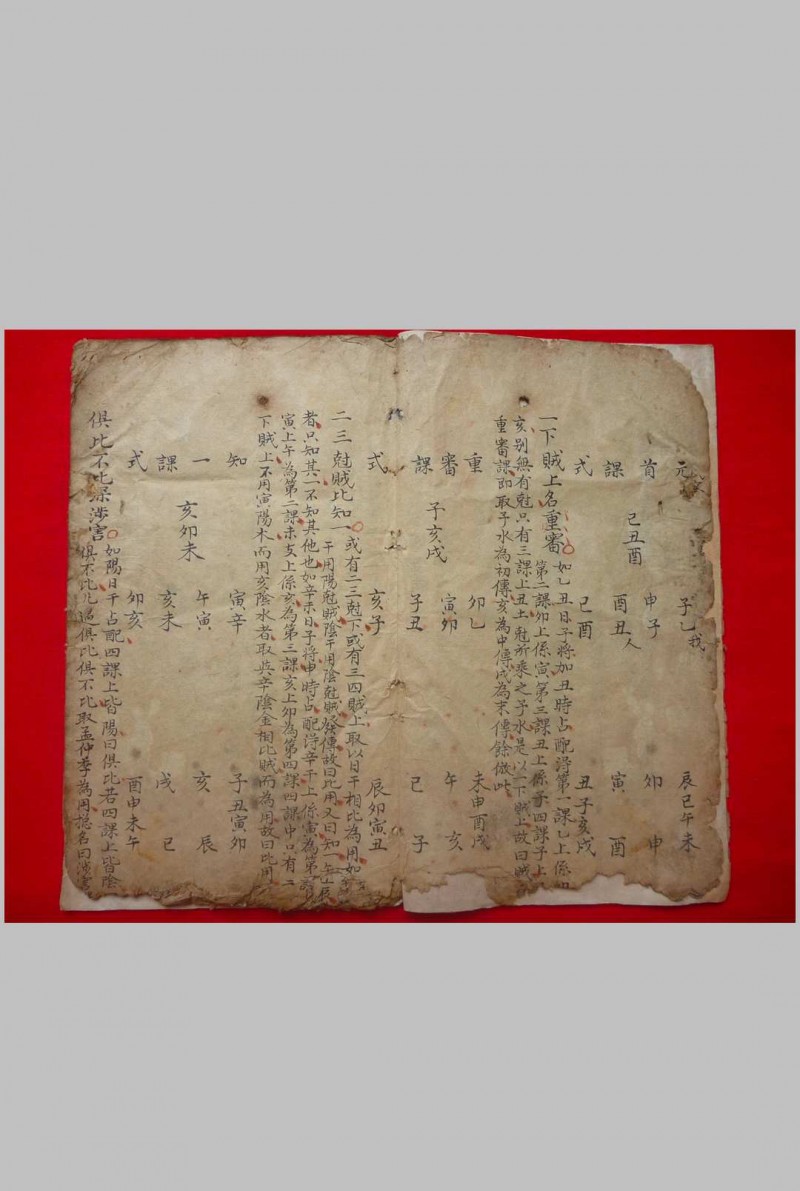 元首課式
己丑酉
子乙我
申子
酉丑人
己酉
辰巳午未
卯申
寅酉
丑子亥戌
一下賊上名重審○如乙丑日子將加丑時占配淂第一課乙上係
第二課卯上係寅第三課丑上係子四課子上
亥别無有尅只有三課上丑土尅所乘之子水是以一下賊上故曰賊
重審課即取子水為初傳亥為中傳戌為末傳餘倣此
重審課式
子亥戌
卯乙
寅卯
子丑
亥子
未申酉戌
午亥
己子
辰卯寅丑
二三尅賊比知一○或有二三尅下或有三四賊上取以日干相比為用如
干用陽尅賊陰干用陰尅賊發傳故曰比用又曰知一
者只知其一不知其他也如辛未日子將申時占配淂辛干上係寅為第
寅上午為第二課未支上係亥為第三課亥上卯為第四課四課中只有二
下賊上不用寅陽木而用亥陰水者取與辛陰金相比賊而為用故曰比用
知一課式
亥卯未
寅辛
午寅
亥未
卯亥
子丑寅卯
亥辰
戌巳
酉申未午
俱比不比深涉害○如陽日干占配四課上皆陽曰俱比若四課上皆陰
俱不比比過俱比俱不比取孟仲季為用揔名曰涉害